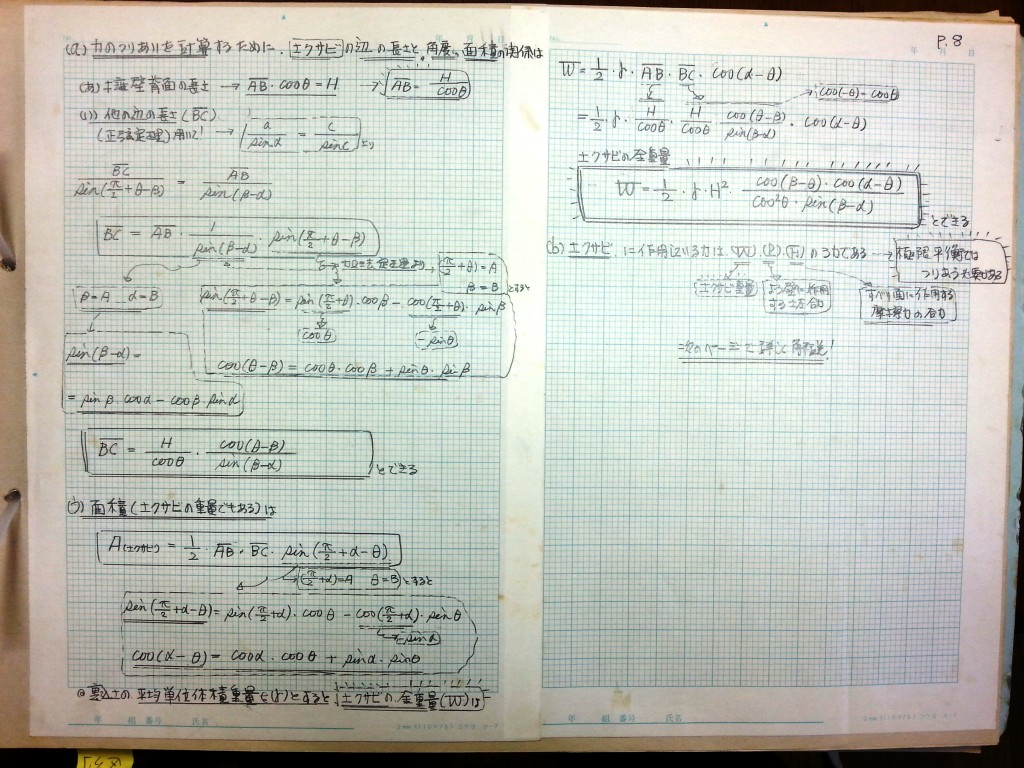 (a) 力のつりあいを計算するために、土クサビの辺の長さと、角度、面積の関係は
(あ) 擁壁背面の長さ → AB・cosθ = H → AB = H/cosθ
(い) 他の辺の長さ (BC)
(正弦定理)用いて! → a/sinα = c/sinC より
BC/sin(π/2+θ-β) = AB/sin(β-α)
BC = AB・1/sin(β-α)・sin(π/2+θ-β)
加法定理より (π/2+θ) = A
β = B とすると
β=A α=B
sin(π/2+θ-β) = sin(π/2+θ)・cosβ - cos(π/2+θ)・sinβ
cosθ -sinθ
sin(β-α) =
cos(θ-β) = cosθ・cosβ + sinθ・sinβ
= sinβ・cosα - cosβ・sinα
BC = H/cosθ・cos(θ-β)/sin(β-α) とできる
(う) 面積(土クサビの重量でもある)は
A(土クサビ) = 1/2・AB・BC・sin(π/2+α-θ)
(π/2+α)=A θ=B とすると
sin(π/2+α-θ) = sin(π/2+α)・cosθ - cos(π/2+α)・sinθ
-sinα
cos(α-θ) = cosα・cosθ + sinα・sinθ
◎裏込土の平均単位体積重量を(γ)とすると 土クサビの全重量(W)は
年 組 番号 氏名
P.8
年 月 日
W = 1/2・γ・AB・BC・cos(α-θ)
cos(-θ) = cosθ
= 1/2・γ・H/cosθ・H/cosθ・cos(θ-β)/sin(β-α)・cos(α-θ)
土クサビの全重量
W = 1/2・γ・H²・cos(β-θ)・cos(α-θ)/cos²θ・sin(β-α) とできる
(b) 土クサビに作用している力は、(W) (P) (F) の3力である → 極限平衡では
つりあう必要がある
土クサビ重量
よう壁に作用
する土圧合力
すべり面に作用する
摩擦力の合力
=次のページで詳しく解説!
年 組 番号 氏名